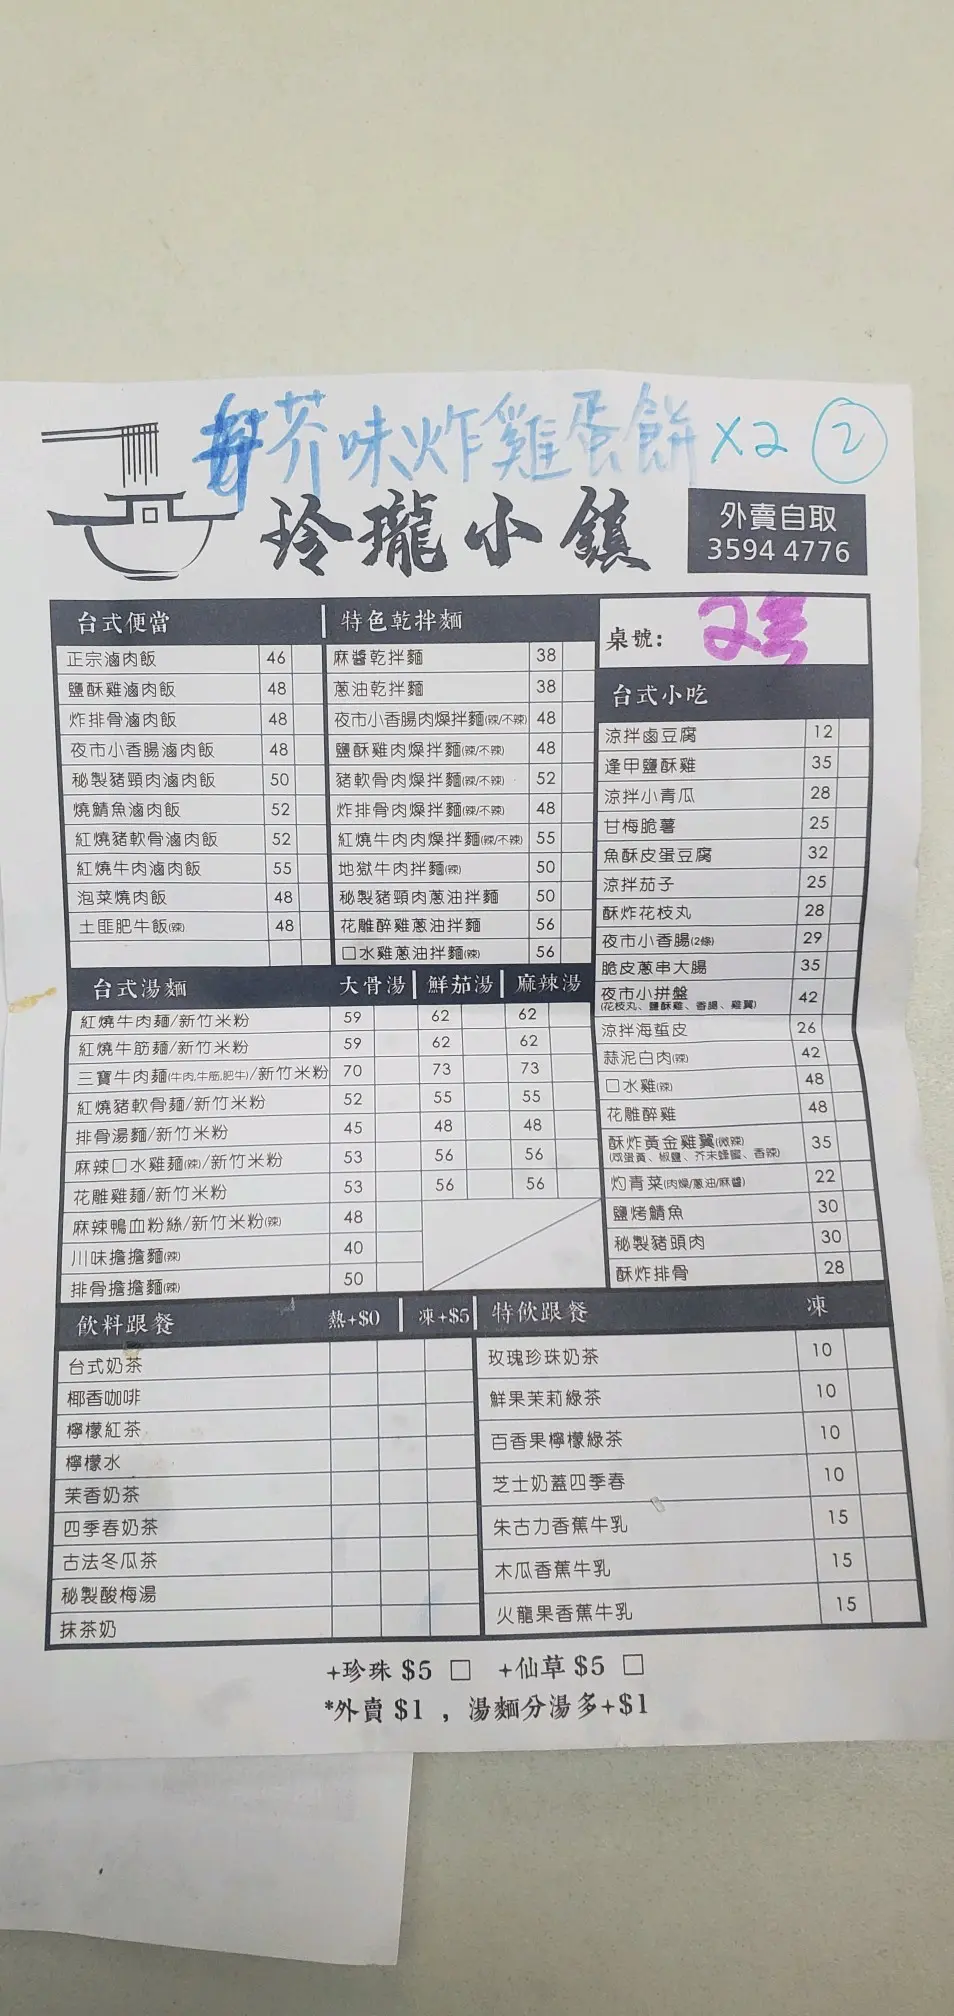 芥味炸雞蛋餅 x2 ②
玲瓏小鎮
外賣自取
3594 4776
桌號: 2号
台式便當
正宗滷肉飯 46
鹽酥雞滷肉飯 48
炸排骨滷肉飯 48
夜市小香腸滷肉飯 48
秘製豬頸肉滷肉飯 50
燒鯖魚滷肉飯 52
紅燒豬軟骨滷肉飯 52
紅燒牛肉滷肉飯 55
泡菜燒肉飯 48
土匪肥牛飯(辣) 48
特色乾拌麵
麻醬乾拌麵 38
蔥油乾拌麵 38
夜市小香腸肉燥拌麵(辣/不辣) 48
鹽酥雞肉燥拌麵(辣/不辣) 48
豬軟骨肉燥拌麵(辣/不辣) 52
炸排骨肉燥拌麵(辣/不辣) 48
紅燒牛肉肉燥拌麵(辣/不辣) 55
地獄牛肉拌麵(辣) 50
秘製豬頸肉蔥油拌麵 50
花雕醉雞蔥油拌麵 56
口水雞蔥油拌麵(辣) 56
台式小吃
涼拌鹵豆腐 12
逢甲鹽酥雞 35
涼拌小青瓜 28
甘梅脆薯 25
魚酥皮蛋豆腐 32
涼拌茄子 25
酥炸花枝丸 28
夜市小香腸(2條) 29
脆皮蔥串大腸 35
夜市小拼盤 42
(花枝丸、鹽酥雞、香腸、雞翼)
涼拌海蜇皮 26
蒜泥白肉(辣) 42
口水雞(辣) 48
花雕醉雞 48
酥炸黃金雞翼(微辣) 35
(咸蛋黃、椒鹽、芥末蜂蜜、香辣)
灼青菜(肉燥/蔥油/麻醬) 22
鹽烤鯖魚 30
秘製豬頭肉 30
酥炸排骨 28
台式湯麵 大骨湯 | 鮮茄湯 | 麻辣湯
紅燒牛肉麵/新竹米粉 59 62 62
紅燒牛筋麵/新竹米粉 59 62 62
三寶牛肉麵(牛肉,牛筋,肥牛)/新竹米粉 70 73 73
紅燒豬軟骨麵/新竹米粉 52 55 55
排骨湯麵/新竹米粉 45 48 48
麻辣口水雞麵(辣)/新竹米粉 53 56 56
花雕雞麵/新竹米粉 53 56 56
麻辣鴨血粉絲/新竹米粉(辣) 48
川味擔擔麵(辣) 40
排骨擔擔麵(辣) 50
飲料跟餐 熱+$0 | 凍+$5
台式奶茶
椰香咖啡
檸檬紅茶
檸檬水
茉香奶茶
四季春奶茶
古法冬瓜茶
秘製酸梅湯
抹茶奶
特飲跟餐 凍
玫瑰珍珠奶茶 10
鮮果茉莉綠茶 10
百香果檸檬綠茶 10
芝士奶蓋四季春 10
朱古力香蕉牛乳 15
木瓜香蕉牛乳 15
火龍果香蕉牛乳 15
+珍珠 $5 □ +仙草 $5 □
*外賣 $1 , 湯麵分湯多+$1